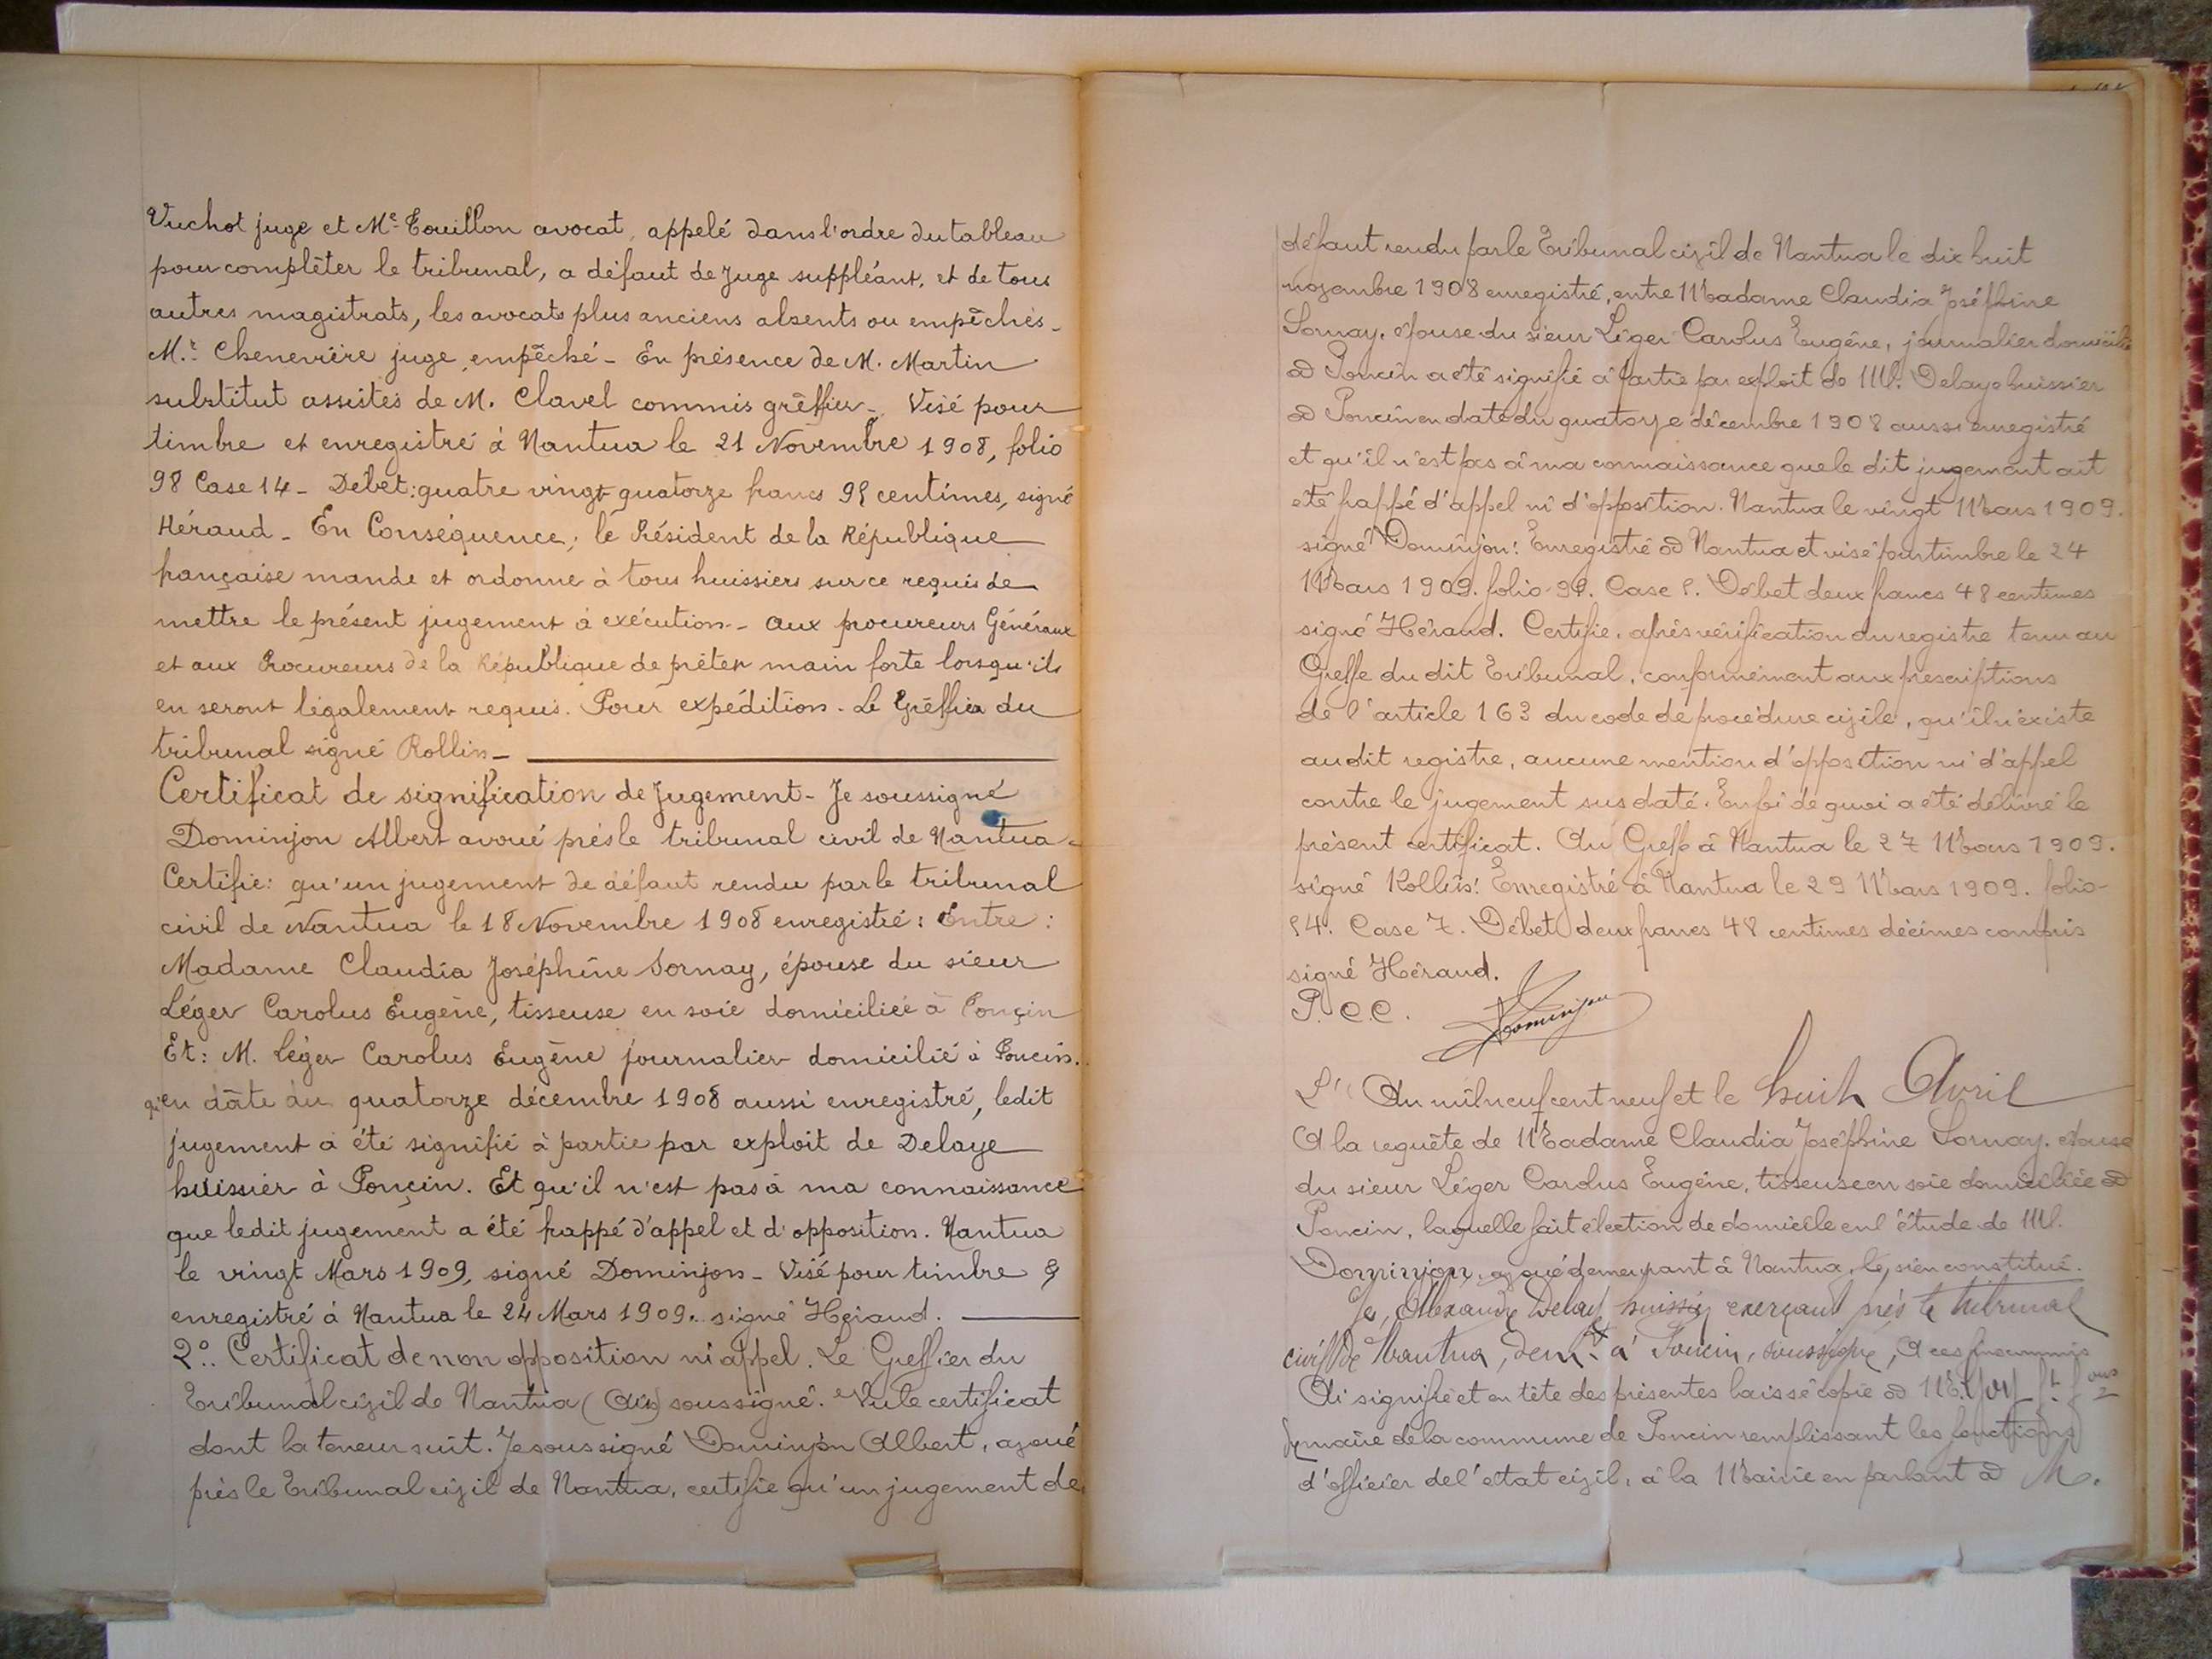 Vuchot juge et Me Touillon avocat, appelé dans l'ordre du tableau
pour complêter le tribunal, a défaut de Juge suppléant, et de tous
autres magistrats, les avocats plus anciens absents ou empêchés -
M.r Chenevière juge, empêché - En présence de M. Martin
substitut assistés de M. Clavel commis grêffier - Visé pour
timbre et enregistré à Nantua le 21 Novembre 1908, folio
98 Case 14 - Debet: quatre vingt quatorze francs 95 centimes, signé
Héraud - En Conséquence, le Président de la République
française mande et ordonne à tous huissiers sur ce requis de
mettre le présent jugement à exécution - aux procureurs Généraux
et aux Procureurs de la République de prêter main forte lorsqu'ils
en seront légalement requis. Pour expédition - Le Grêffier du
tribunal signé Rollin -
Certificat de signification de Jugement - Je soussigné
Dominjon Albert avoué près le tribunal civil de Nantua -
Certifie: qu'un jugement de défaut rendu par le tribunal
civil de Nantua le 18 Novembre 1908 enregistré: Entre:
Madame Claudia Joséphine Sornay, épouse du sieur
Léger Carolus Eugène, tisseuse en soie domiciliée à Poncin
Et: M. Léger Carolus Eugène journalier domicilié à Poncin.
qu'en date du quatorze décembre 1908 aussi enregistré, ledit
jugement a été signifié à partie par exploit de Delaye
huissier à Poncin. Et qu'il n'est pas à ma connaissance
que ledit jugement a été frappé d'appel et d'opposition. Nantua
le vingt Mars 1909, signé Dominjon - Visé pour timbre &
enregistré à Nantua le 24 Mars 1909. signé Héraud.
2o. Certificat de non opposition ni appel. Le Greffier du
Tribunal civil de Nantua (Ain) soussigné. Vu le certificat
dont la teneur suit. Je soussigné Dominjon Albert, avoué
près le Tribunal civil de Nantua, certifie qu'un jugement de
défaut rendu par le Tribunal civil de Nantua le dix huit
novembre 1908 enregistré, entre Madame Claudia Joséphine
Sornay, épouse du sieur Léger Carolus Eugène, journalier domicilié
à Poncin a été signifié à partie par exploit de M. Delaye huissier
à Poncin en date du quatorze décembre 1908 aussi enregistré
et qu'il n'est pas à ma connaissance que le dit jugement ait
été frappé d'appel ni d'opposition. Nantua le vingt Mars 1909.
signé Dominjon. Enregistré à Nantua et visé pour timbre le 24
Mars 1909. folio Case 5. Débet deux francs 48 centimes
signé Héraud. Certifie, après vérification du registre tenu au
Greffe du dit Tribunal, conformément aux prescriptions
de l'article 163 du code de procédure civile, qu'il n'existe
au dit registre, aucune mention d'opposition ni d'appel
contre le jugement sus daté. En foi de quoi a été délivré le
présent certificat. Au Greffe à Nantua le 27 Mars 1909.
signé Rollin. Enregistré à Nantua le 29 Mars 1909. folio
54. Case 7. Débet deux francs 48 centimes décimes compris
signé Héraud.
P. C. C. Dominjon
L' An mil neuf cent neuf et le huit Avril
A la requête de Madame Claudia Joséphine Sornay, épouse
du sieur Léger Carolus Eugène, tisseuse en soie domiciliée à
Poncin, laquelle fait élection de domicile en l'étude de M.
Dominjon, avoué demeurant à Nantua, le sien constitué.
Je, Alexandre Delaye huissier exerçant près le tribunal
civil de Nantua, demt à Poncin, soussigné, A ces fins commis
Ai signifié et en tête des présentes laissé copie à M.
maire de la commune de Poncin remplissant les fonctions
d'officier de l'état civil, à la Mairie en parlant à M.